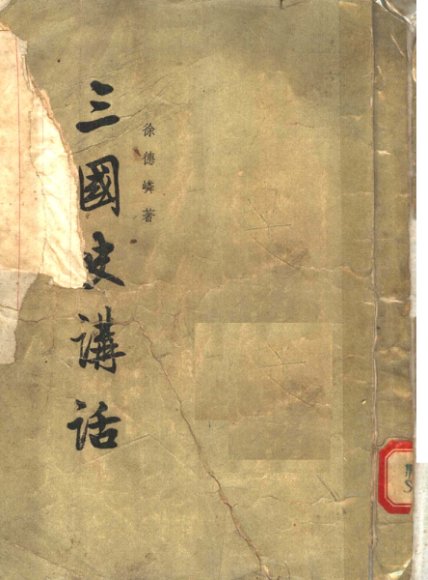 三國史講話
徐德嶙著